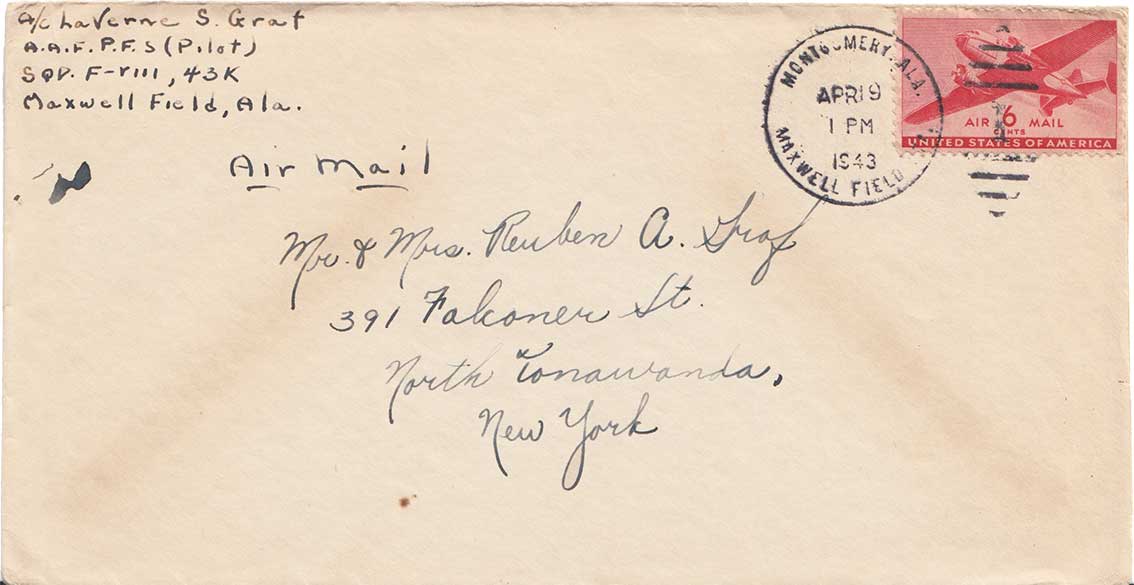 A/c LaVerne S. Graf
A.A.F.P.F.S (Pilot)
SQD. F-VIII, 43K
Maxwell Field, Ala.
MONTGOMERY, ALA.
APR 19
1 PM
1943
MAXWELL FIELD
AIR 6 MAIL
CENTS
UNITED STATES OF AMERICA
Air Mail
Mr. & Mrs. Reuben A. Graf
391 Falconer St.
North Tonawanda,
New York